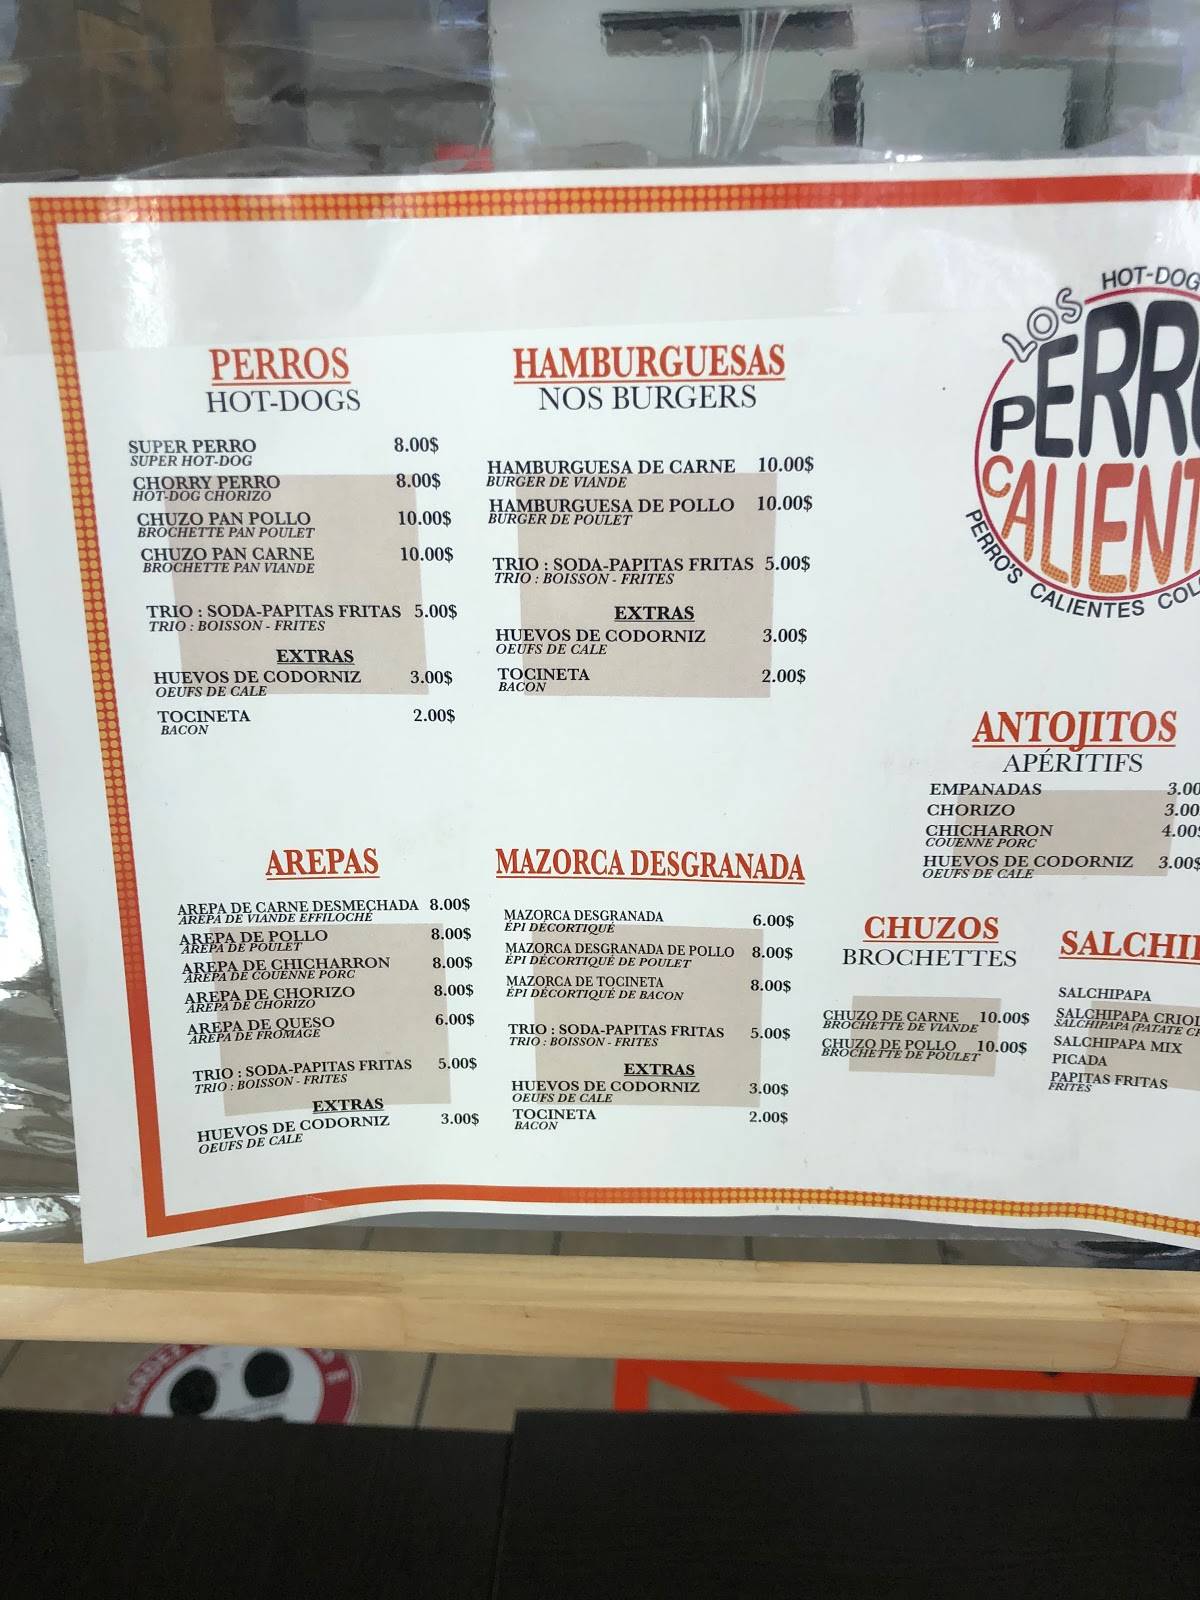 PERROS
HOT-DOGS
SUPER PERRO 8.00$
SUPER HOT-DOG
CHORRY PERRO 8.00$
HOT-DOG CHORIZO
CHUZO PAN POLLO 10.00$
BROCHETTE PAN POULET
CHUZO PAN CARNE 10.00$
BROCHETTE PAN VIANDE
TRIO : SODA-PAPITAS FRITAS 5.00$
TRIO : BOISSON - FRITES
EXTRAS
HUEVOS DE CODORNIZ 3.00$
OEUFS DE CALE
TOCINETA 2.00$
BACON
HAMBURGUESAS
NOS BURGERS
HAMBURGUESA DE CARNE 10.00$
BURGER DE VIANDE
HAMBURGUESA DE POLLO 10.00$
BURGER DE POULET
TRIO : SODA-PAPITAS FRITAS 5.00$
TRIO : BOISSON - FRITES
EXTRAS
HUEVOS DE CODORNIZ 3.00$
OEUFS DE CALE
TOCINETA 2.00$
BACON
HOT-DOG
LOS
PERR
CALIENT
PERRO'S CALIENTES COL
ANTOJITOS
APÉRITIFS
EMPANADAS 3.00
CHORIZO 3.00
CHICHARRON 4.00$
COUENNE PORC
HUEVOS DE CODORNIZ 3.00$
OEUFS DE CALE
AREPAS
AREPA DE CARNE DESMECHADA 8.00$
AREPA DE VIANDE EFFILOCHÉ
AREPA DE POLLO 8.00$
AREPA DE POULET
AREPA DE CHICHARRON 8.00$
AREPA DE COUENNE PORC
AREPA DE CHORIZO 8.00$
AREPA DE CHORIZO
AREPA DE QUESO 6.00$
AREPA DE FROMAGE
TRIO : SODA-PAPITAS FRITAS 5.00$
TRIO : BOISSON - FRITES
EXTRAS
HUEVOS DE CODORNIZ 3.00$
OEUFS DE CALE
MAZORCA DESGRANADA
MAZORCA DESGRANADA 6.00$
ÉPI DÉCORTIQUÉ
MAZORCA DESGRANADA DE POLLO 8.00$
ÉPI DÉCORTIQUÉ DE POULET
MAZORCA DE TOCINETA 8.00$
ÉPI DÉCORTIQUÉ DE BACON
TRIO : SODA-PAPITAS FRITAS 5.00$
TRIO : BOISSON - FRITES
EXTRAS
HUEVOS DE CODORNIZ 3.00$
OEUFS DE CALE
TOCINETA 2.00$
BACON
CHUZOS
BROCHETTES
CHUZO DE CARNE 10.00$
BROCHETTE DE VIANDE
CHUZO DE POLLO 10.00$
BROCHETTE DE POULET
SALCHI
SALCHIPAPA
SALCHIPAPA CRIOL
SALCHIPAPA (PATATE
SALCHIPAPA MIX
PICADA
PAPITAS FRITAS
FRITES